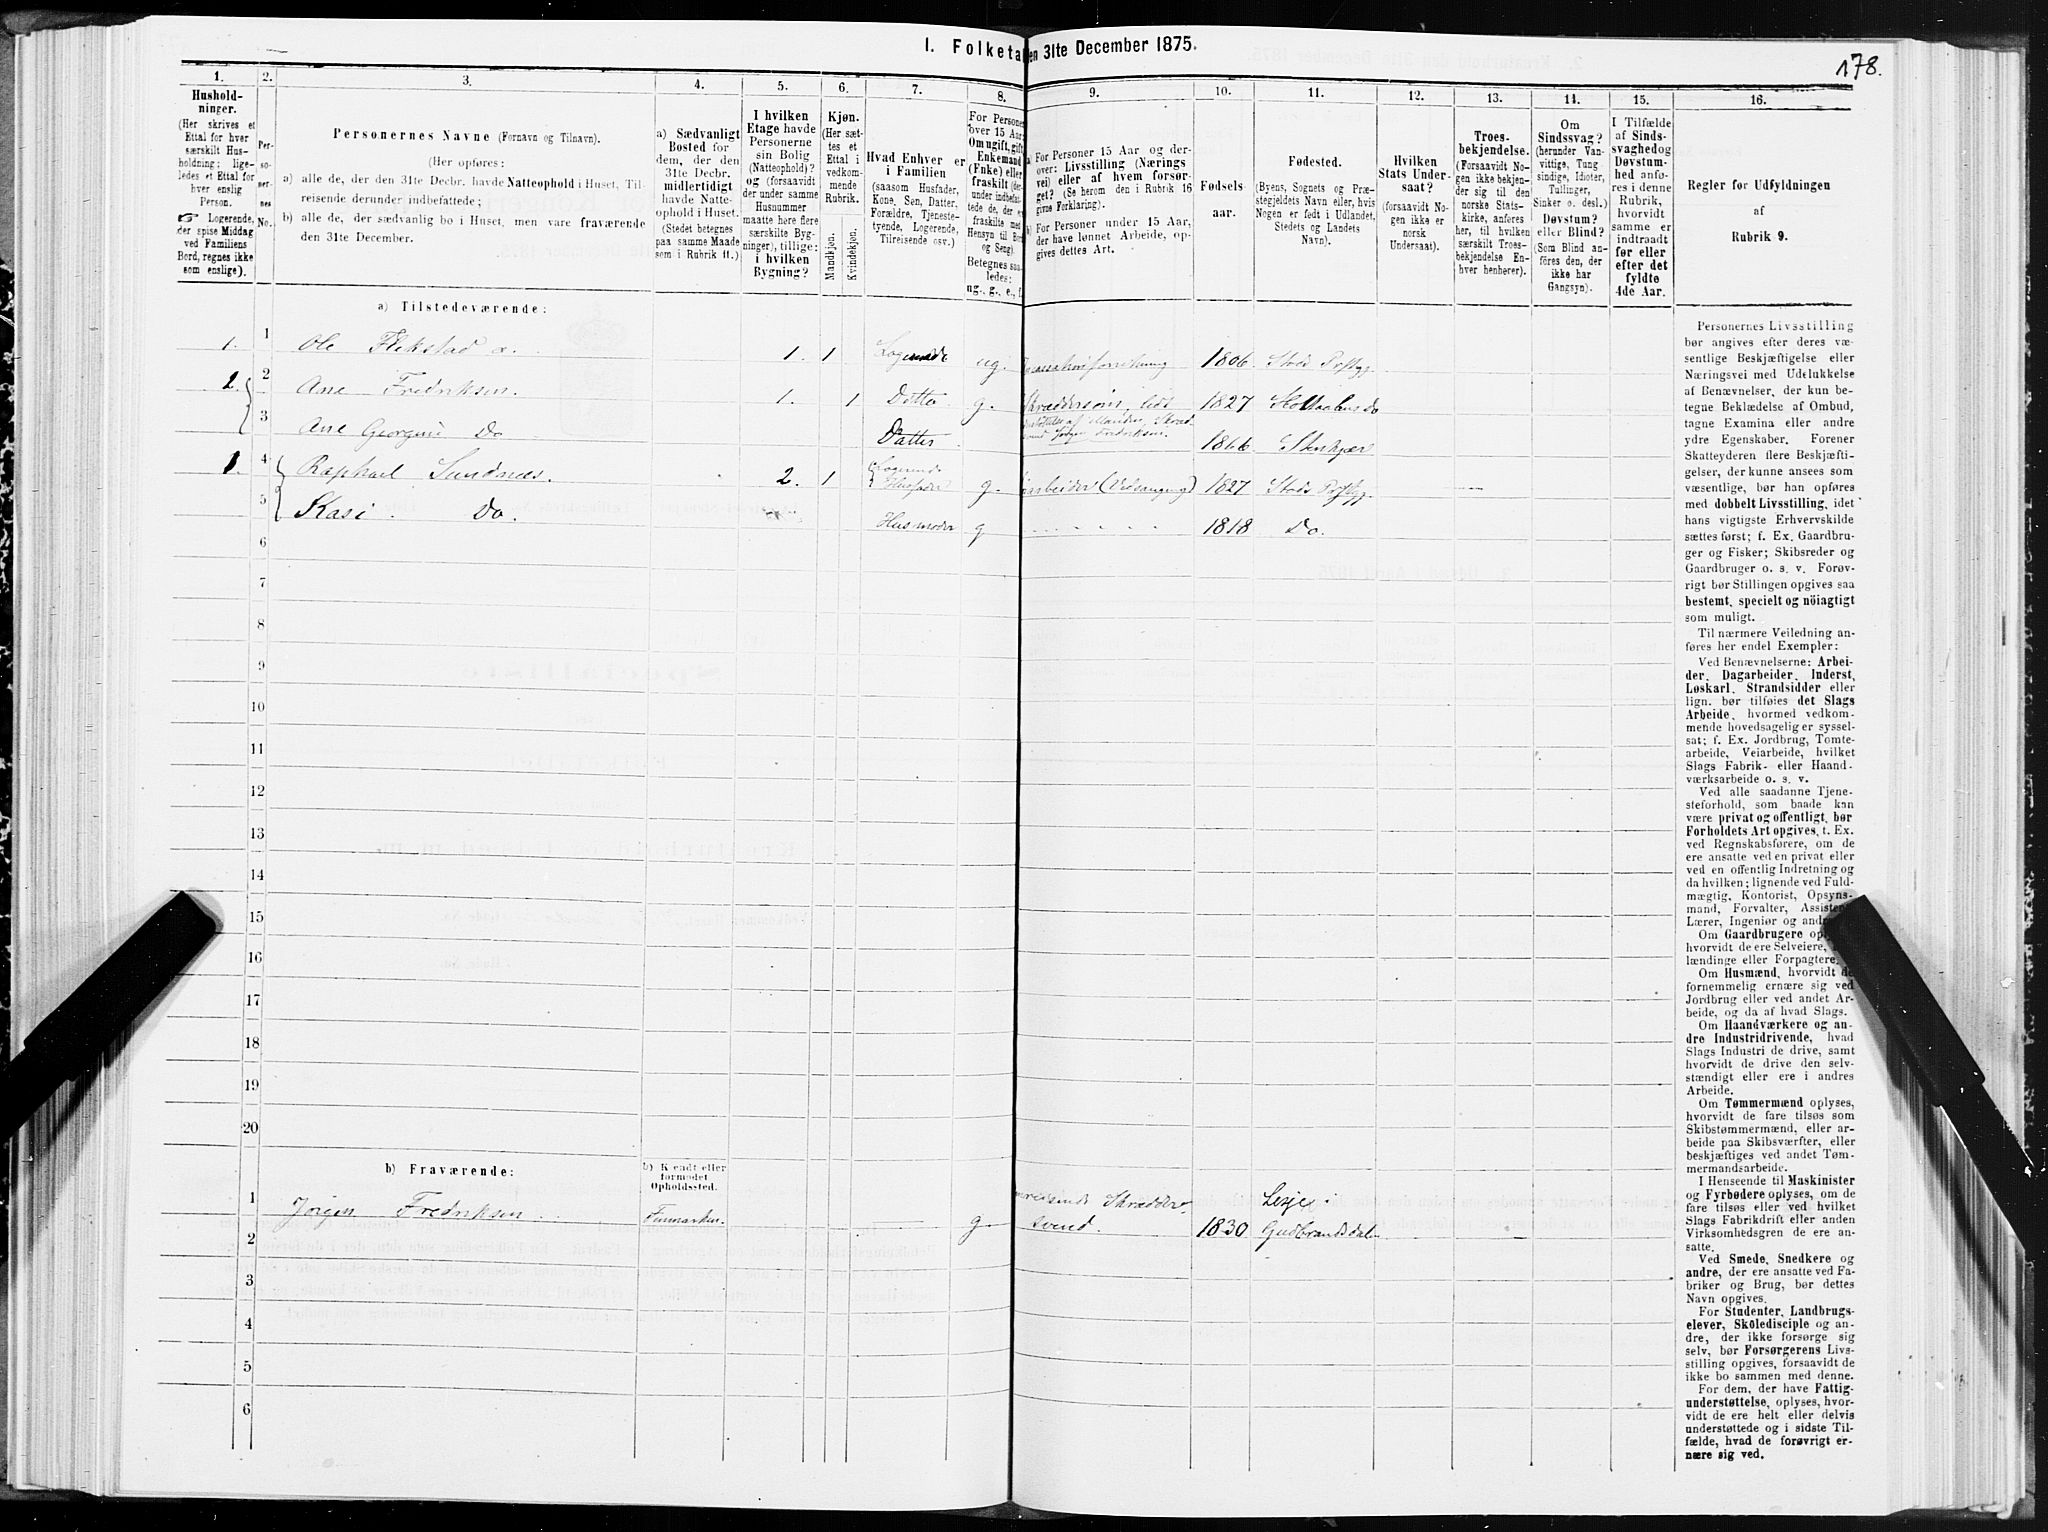 I. Folketal den 31te December 1875.
178.
1.
2.
3.
4.
5.
6.
7.
8.
9.
10.
11.
12.
13.
14.
15.
16.
Hushold-
ninger.
(Her skrives et
Ettal for hver
særskilt Hus-
holdning; lige-
ledes et Ettal for
hver enslig
Person.
☞ Logerende,
der spise Middag
ved Familiens
Bord, regnes ikke
som enslige).
Per-
so-
ner-
nes
No.
Personernes Navne (Fornavn og Tilnavn).
(Her opføres:
a) alle de, der den 31te Decbr. havde Natteophold i Huset, Til-
reisende derunder indbefattede;
b) alle de, der sædvanlig bo i Huset, men vare fraværende
den 31te December.
a) Sædvanligt
Bosted for
dem, der den
31te Decbr.
midlertidigt
havde Natte-
ophold i Huset.
(Stedet betegnes
paa samme Maade
som i Rubrik 11.)
I hvilken
Etage havde
Personerne
sin Bolig
(Natteophold)?
og (forsaavidt
der under samme
Husnummer
maatte høre flere
særskilte Byg-
ninger), tillige:
i hvilken
Bygning?
Kjøn.
(Her sæt-
tes et
Ettal i
vedkom-
mende
Rubrik.
Mandkjøn.
Kvindekjøn.
Hvad Enhver er
i Familien
(saasom Husfader,
Kone, Søn, Datter,
Forældre, Tjeneste-
tyende, Logerende,
Tilreisende osv.)
For Personer
over 15 Aar:
Om ugift, gift,
Enkemand
(Enke) eller
fraskilt (der-
under indbefat-
tede de, der ere
fraskilte med
Hensyn til Bord
og Seng).
Betegnes saa-
ledes:
ug., g., e., f.
a) For Personer 15 Aar og der-
over: Livsstilling (Nærings
vei) eller af hvem forsør-
get? (Se herom den i Rubrik 16
givne Forklaring).
b) For Personer under 15 Aar,
der have lønnet Arbeide, op-
gives dettes Art.
Fødsels
aar.
Fødested.
(Byens, Sognets og Præ-
stegjeldets Navn eller, hvis
Nogen er født i Udlandet,
Stedets og Landets
Navn).
Hvilken
Stats Under-
saat?
(forsaavidt No-
gen ikke er
norsk
Undersaat).
Troes-
bekjendelse.
(Forsaavidt No-
gen ikke bekjen-
der sig til den
norske Stats-
kirke, anføres
her, til hvilken
særskilt Troes-
bekjendelse En-
hver henhører).
Om
Sindssvag?
(herunder Van-
vittige, Tung-
sindige, Idioter,
Tullinger,
Sinker o. desl.)
Døvstum?
eller Blind?
(Som Blind an-
føres den, der
ikke har
Gangsyn).
I Tilfælde
af Sinds-
svaghed og
Døvstum-
hed anfø-
res i denne
Rubrik,
hvorvidt
samme er
indtraadt
før eller
efter det
fyldte
4de Aar.
Regler for Udfyldningen
af
Rubrik 9.
a) Tilstedeværende:
1. 1 Ole Flekstad 1. 1 Logerende ug. 1806. Stods Prstgj.
2 2 Ane Fredriksen. 1. 1 Ditto g. 1827
3 Ane Georgine Do Datter 1866 Stenkjær
1. 4 Raphael Sundnæs. 2. 1 Logerende Husfader g. arbeider 1827 Stods Prstgj.
5 Kasi. Do. Husmoder g 1818 Do.
6
7
8
9
10
11
12
13
14
15
16
17
18
19
20
b) Fraværende:
b) Kjendt eller
formodet
Opholdssted.
1 Jørgen Fredriksen Finmarken. g. Skrædder-
svend. 1830 Lesje i
Gudbrandsdalen
2
3
4
5
6
Personernes Livsstilling
bør angives efter deres væ-
sentlige Beskjæftigelse eller
Næringsvei med Udelukkelse
af Benævnelser, der kun be-
tegne Beklædelse af Ombud,
tagne Examina eller andre
ydre Egenskaber. Forener
Skatteyderen flere Beskjæfti-
gelser, der kunne ansees som
væsentlige, bør han opføres
med dobbelt Livsstilling, idet
hans vigtigste Erhvervskilde
sættes først; f. Ex. Gaardbru-
ger og Fisker; Skibsreder og
Gaardbruger o. s. v. Forøv-
rigt bør Stillingen opgives saa
bestemt, specielt og nöiagtigt
som muligt.
Til nærmere Veiledning an-
føres her endel Exempler:
Ved Benævnelserne: Arbei-
der, Dagarbeider, Inderst,
Løskarl, Strandsidder eller
lign. bør tilføies det Slags
Arbeide, hvormed vedkom-
mende hovedsagelig er syssel-
sat; f. Ex. Jordbrug, Tomte-
arbeide, Veiarbeide, hvilket
Slags Fabrik- eller Haand-
værksarbeide o. s. v.
Ved alle saadanne Tjene-
steforhold, som baade kan
være privat og offentligt, bør
Forholdets Art opgives, t. Ex.
ved Regnskabsførere, om de
ere ansatte ved en privat eller
ved en offentlig Indretning og
da hvilken; lignende ved Fuld-
mægtig, Kontorist, Opsyns-
mand, Forvalter, Assistent,
Lærer, Ingeniør og andre.
Om Gaardbrugere oplyses,
hvorvidt de ere Selveiere, Lei-
lændinge eller Forpagtere.
Om Husmænd, hvorvidt de
fornemmelig ernære sig ved
Jordbrug eller ved andet Ar-
beide, og da af hvad Slags.
Om Haandværkere og an-
dre Industridrivende, hvad
Slags Industri de drive, samt
hvorvidt de drive den selv-
stændigt eller ere i andres
Arbeide.
Om Tømmermænd oplyses,
hvorvidt de fare tilsøs som
Skibstømmermænd, eller ar-
beide paa Skibsværfter, eller
beskjæftiges ved andet Tøm-
mermandsarbeide.
I Henseende til Maskinister
og Fyrbødere oplyses, om de
fare tilsøs eller ved hvilket
Fabrikdrift eller anden
Virksomhedsgren de ere an-
satte.
Ved Smede, Snedkere og
andre, der ere ansatte ved Fa-
briker og Brug, bør dettes
Navn opgives.
For Studenter, Landbrugs-
elever, Skoledisciple og an-
dre, der ikke forsørge sig
selv, bør Forsørgerens Livs-
stilling opgives, forsaavidt de
ikke bo sammen med denne.
For dem, der have Fattig-
understøttelse, oplyses, hvor-
vidt de ere helt eller delvis
understøttede og i sidste Til-
fælde, hvad de forøvrigt er-
nære sig ved.